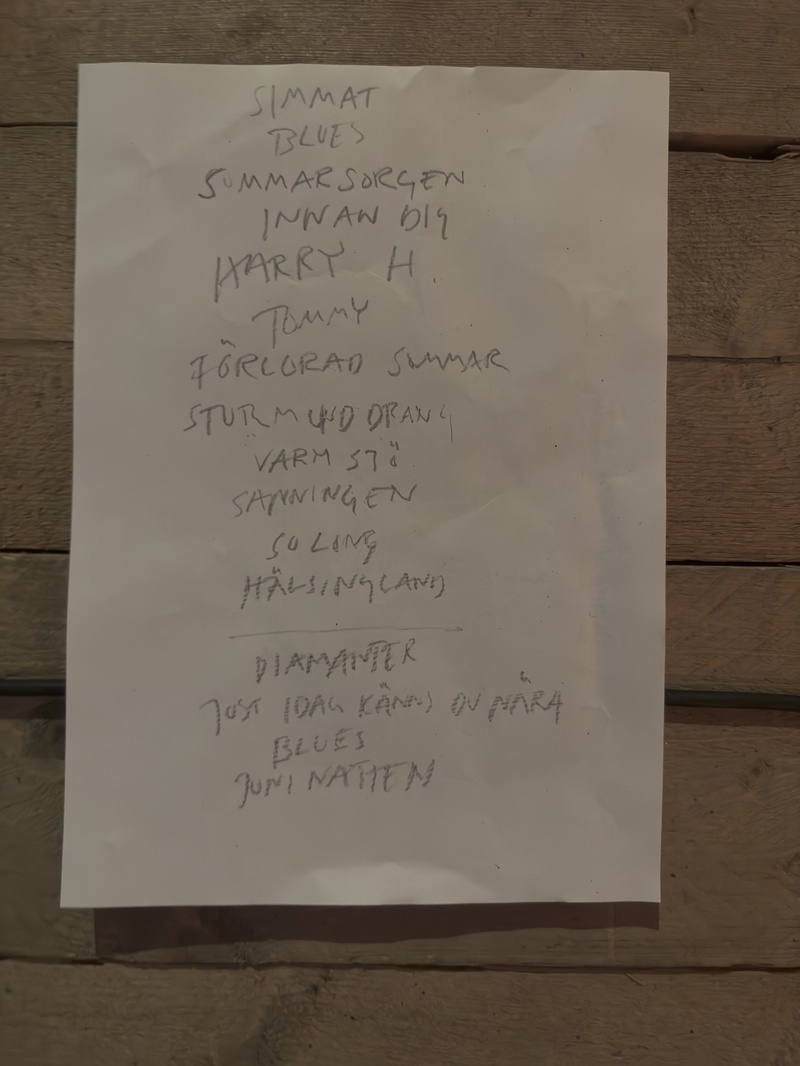 SIMMAT
BLUES
SUMMARSORGEN
INNAN DIG
HARRY H.
TOMMY
FÖRLORAD SUMMAR
STURM UND DRANG
VARM STÖ
SANNINGEN
SO LONG
HÄLSINGLAND
DIAMANTER
JUST IDAG KÄNNS DU NÄRA
BLUES
JUNI NATTEN